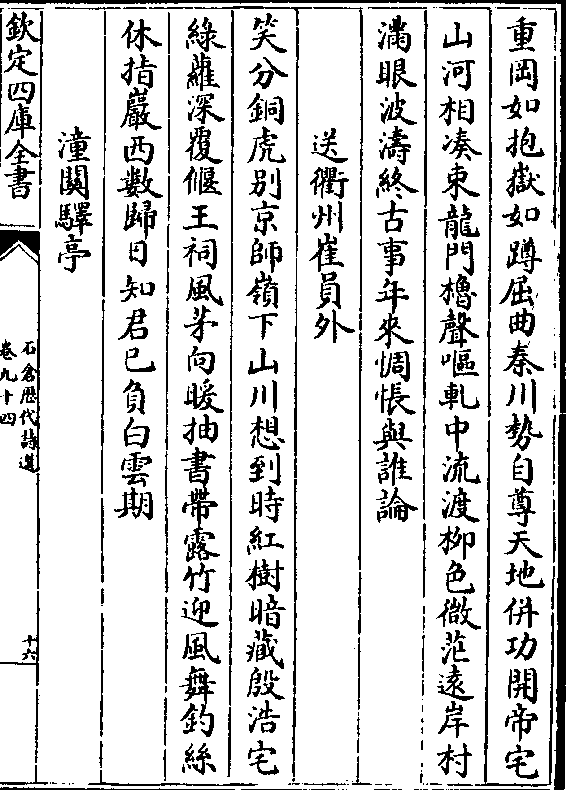 重岡如抱嶽如蹲屈曲秦川勢自尊天地併功開帝宅
山河相凑束龍門櫓聲嘔軋中流渡柳色微茫遠岸村
滿眼波濤終古事年來惆悵與誰論
送衢州崔員外
笑分銅虎别京師嶺下山川想到時紅樹暗藏殷浩宅
綠蘿深覆偃王祠風茅向暖抽書帶露竹迎風舞釣絲
休指巖西數歸日知君已負白雲期
潼關驛亭
欽定四庫全書
石倉歴代詩選
卷九十四
十六